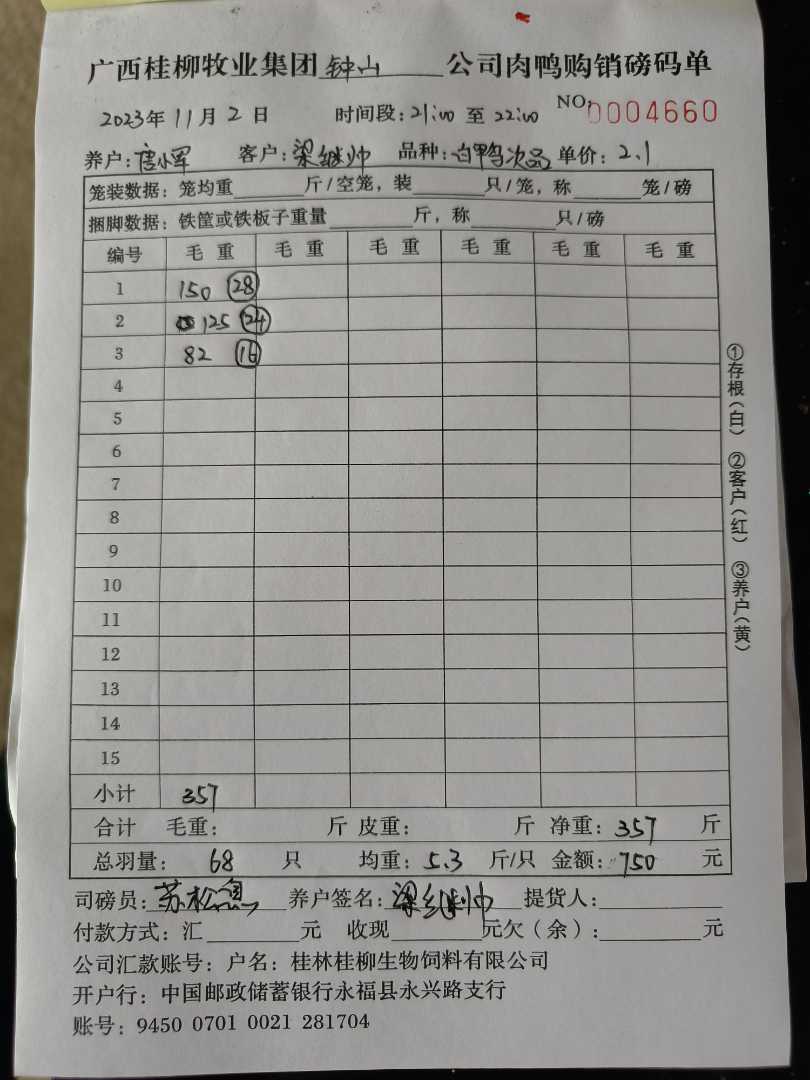 广西桂柳牧业集团钟山公司肉鸭购销磅码单
2023年11月2日 时间段:21:00至22:00 NO:0004660
养户:唐小军 客户:梁继帅 品种:白鸭次品 单价:2.1
笼装数据:笼均重____斤/空笼,装____只/笼,称____笼/磅
捆脚数据:铁筐或铁板子重量____斤,称____只/磅
编号 毛重 毛重 毛重 毛重 毛重 毛重
1 150 28
2 125 24
3 82 16
4
5
6
7
8
9
10
11
12
13
14
15
小计 357
合计 毛重: 斤 皮重: 斤 净重:357 斤
总羽量:68 只 均重:5.3 斤/只 金额:750 元
司磅员:苏松 养户签名:梁继帅 提货人:
付款方式:汇____元 收现____元欠(余):____元
公司汇款账号:户名:桂林桂柳生物饲料有限公司
开户行:中国邮政储蓄银行永福县永兴路支行
账号:9450 0701 0021 281704
①存根(白) ②客户(红) ③养户(黄)